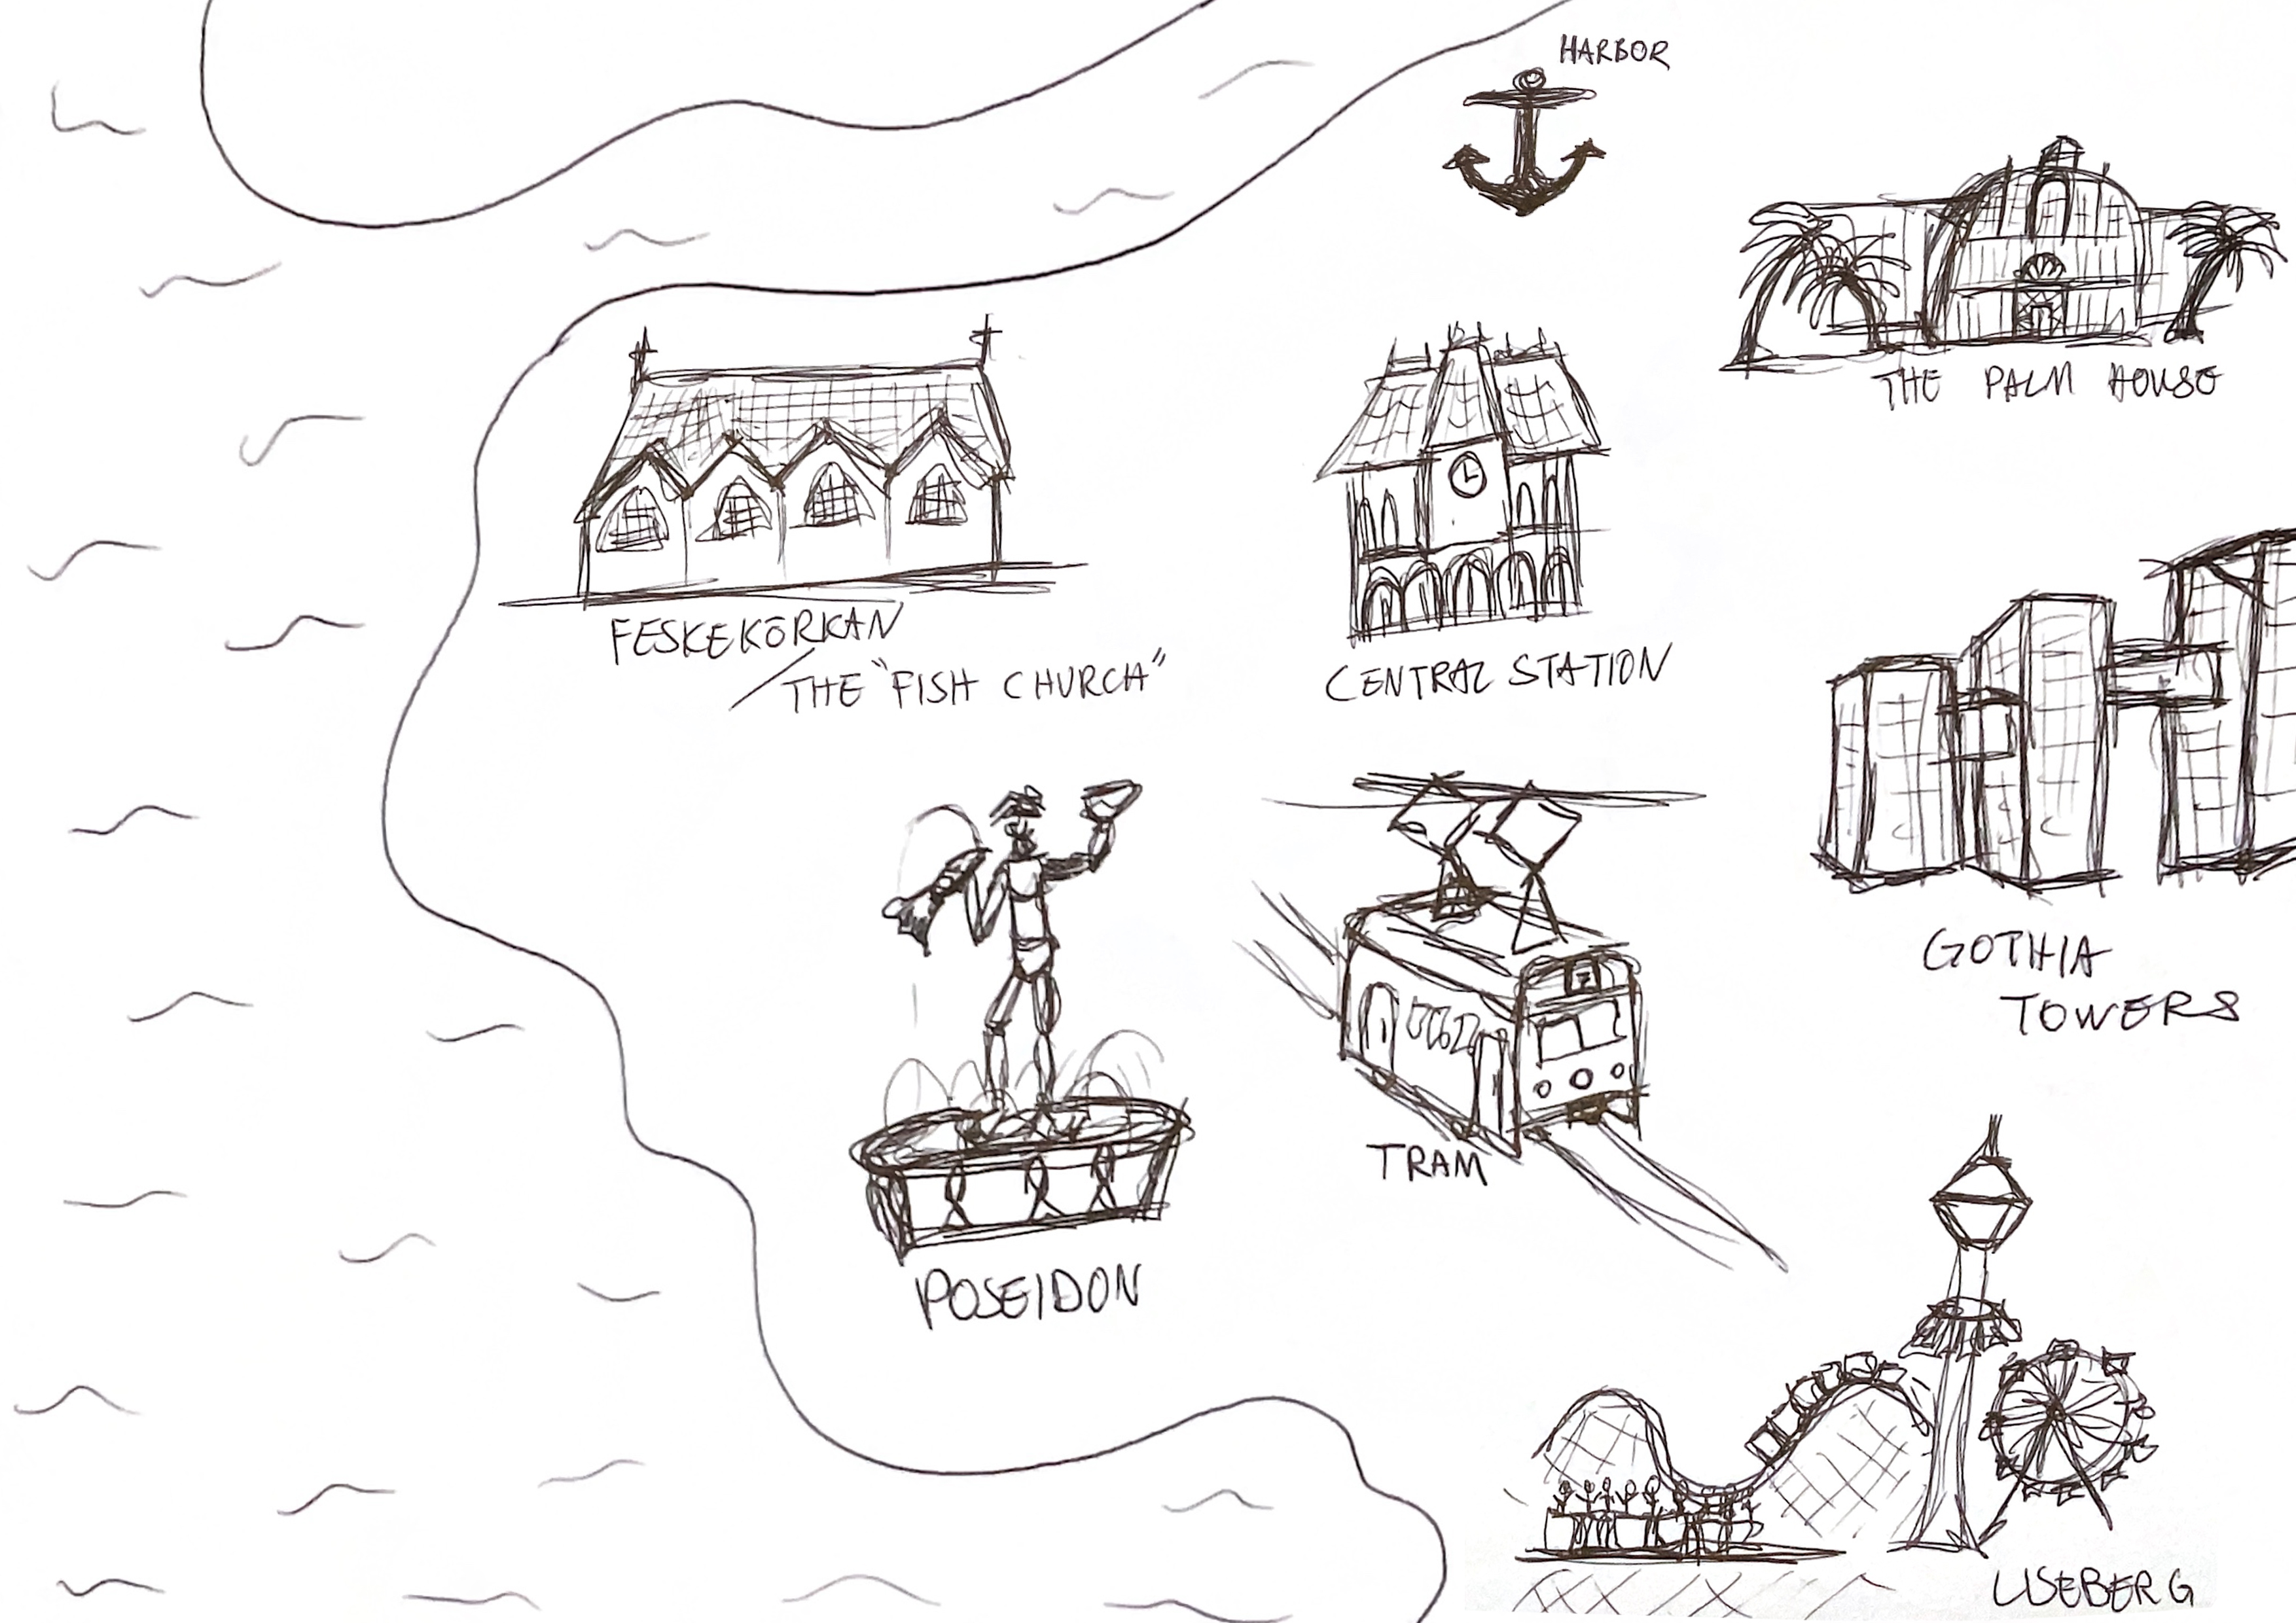 HARBOR
THE PALM HOUSE
FESKEKÖRKAN
/THE "FISH CHURCH"
CENTRAL STATION
GOTHIA
TOWERS
TRAM
POSEIDON
LISEBERG